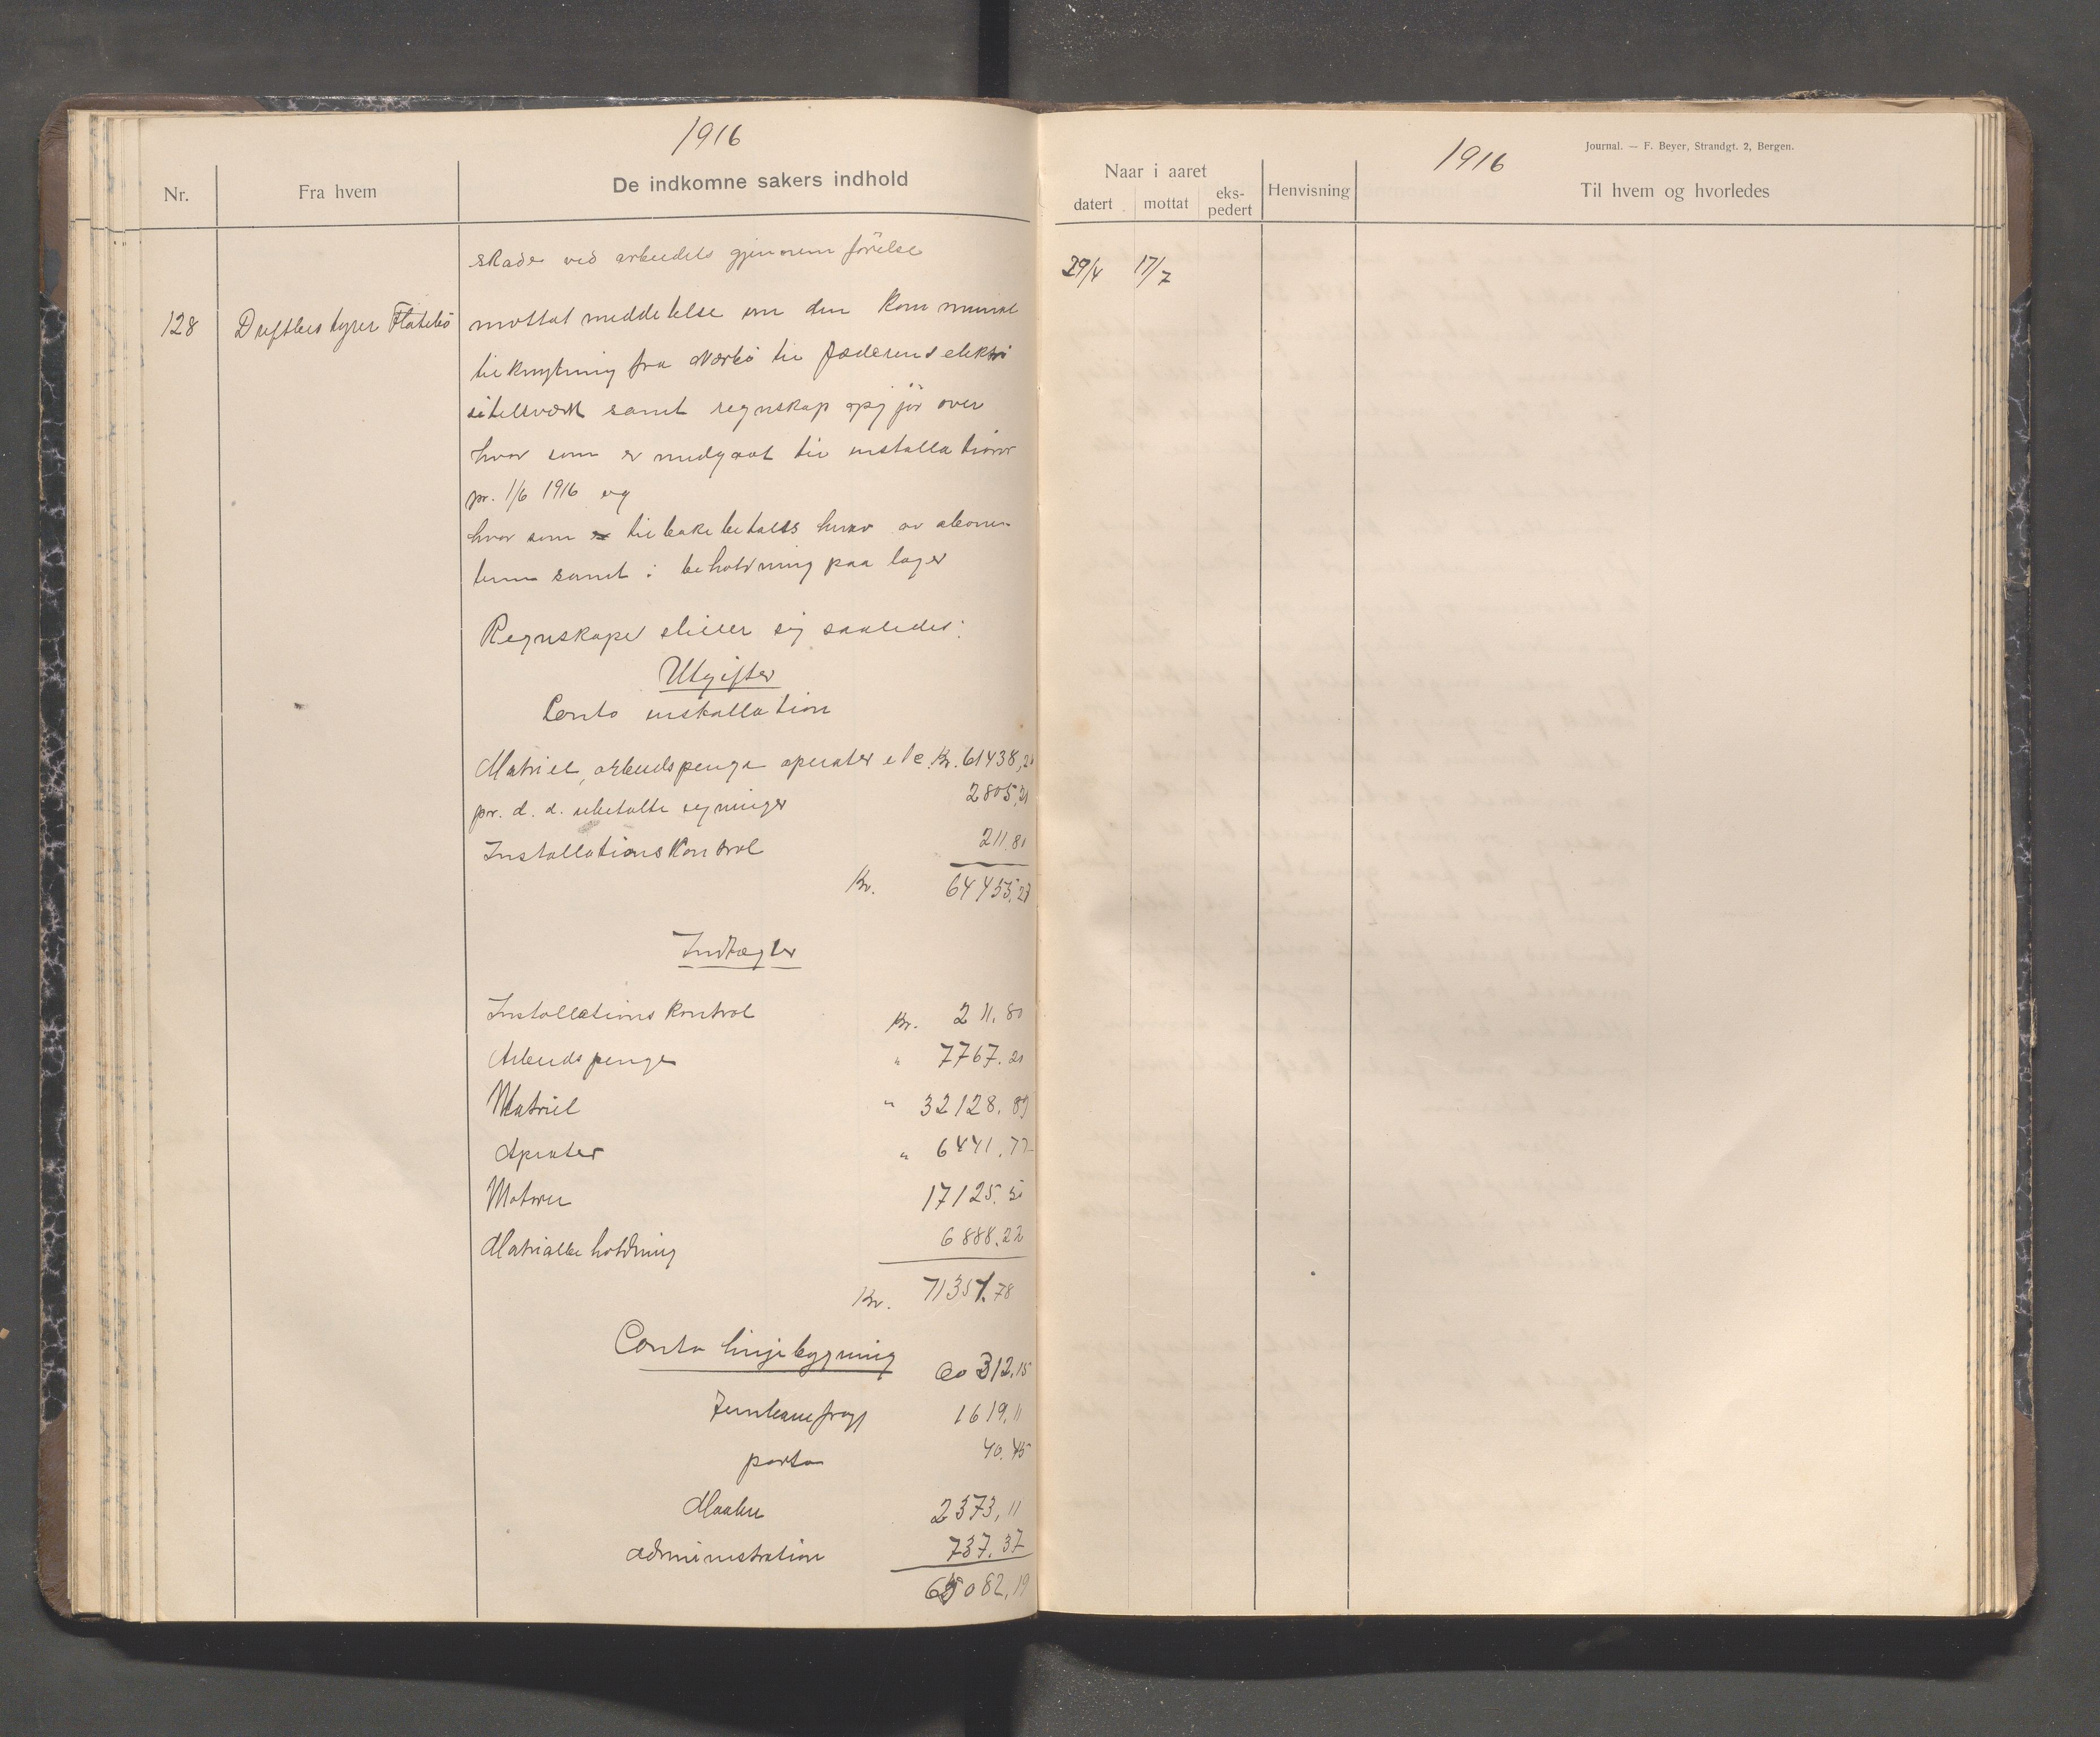 1916
Nr.
Fra hvem
De indkomne sakers indhold
skade ved arbeidets gjennem førelse
128 Driftbestyrer Flatebø mottat meddelelse om den kommunal
tilknytning fra Nærbø til Jæderens elektri
sitetsværk samt regnskap opgjør over
hvor som er medgaat til installationer
pr. 1/6 1916 og
hvor som tilbakebetales herav av abonen
tene samt i beholdning paa lager
Regnskapet stiller sig saaledes:
Utgifter
Conto installation
Matriel, arbeidspenge aperater etc. Kr. 61438,21
pr. d. d. ubetalte regninger 2805,21
Installationskontrol 211.81
Kr. 64455.23
Indtægter
Installationskontrol Kr. 211.80
Arbeidspenge " 7767.21
Matriel " 32128.89
Aperater " 6441.77
Motorer 17125.50
Matrialbeholdning 6888.22
Kr. 71351.78
Conto linjebygning 60312.15
Jernbanefragt 1619.11
porto 40.45
Maalere 2373,11
administration 737.37
65082,19
1916
Journal. — F. Beyer, Strandgt. 2, Bergen.
Naar i aaret
datert
mottat
eks-
pedert
Henvisning
Til hvem og hvorledes
29/4 17/7